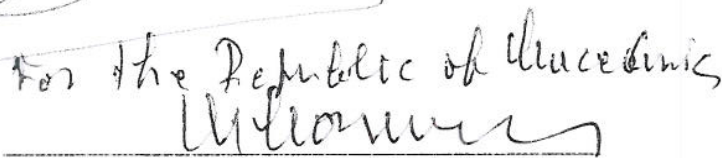 For the Republic of Macedonia